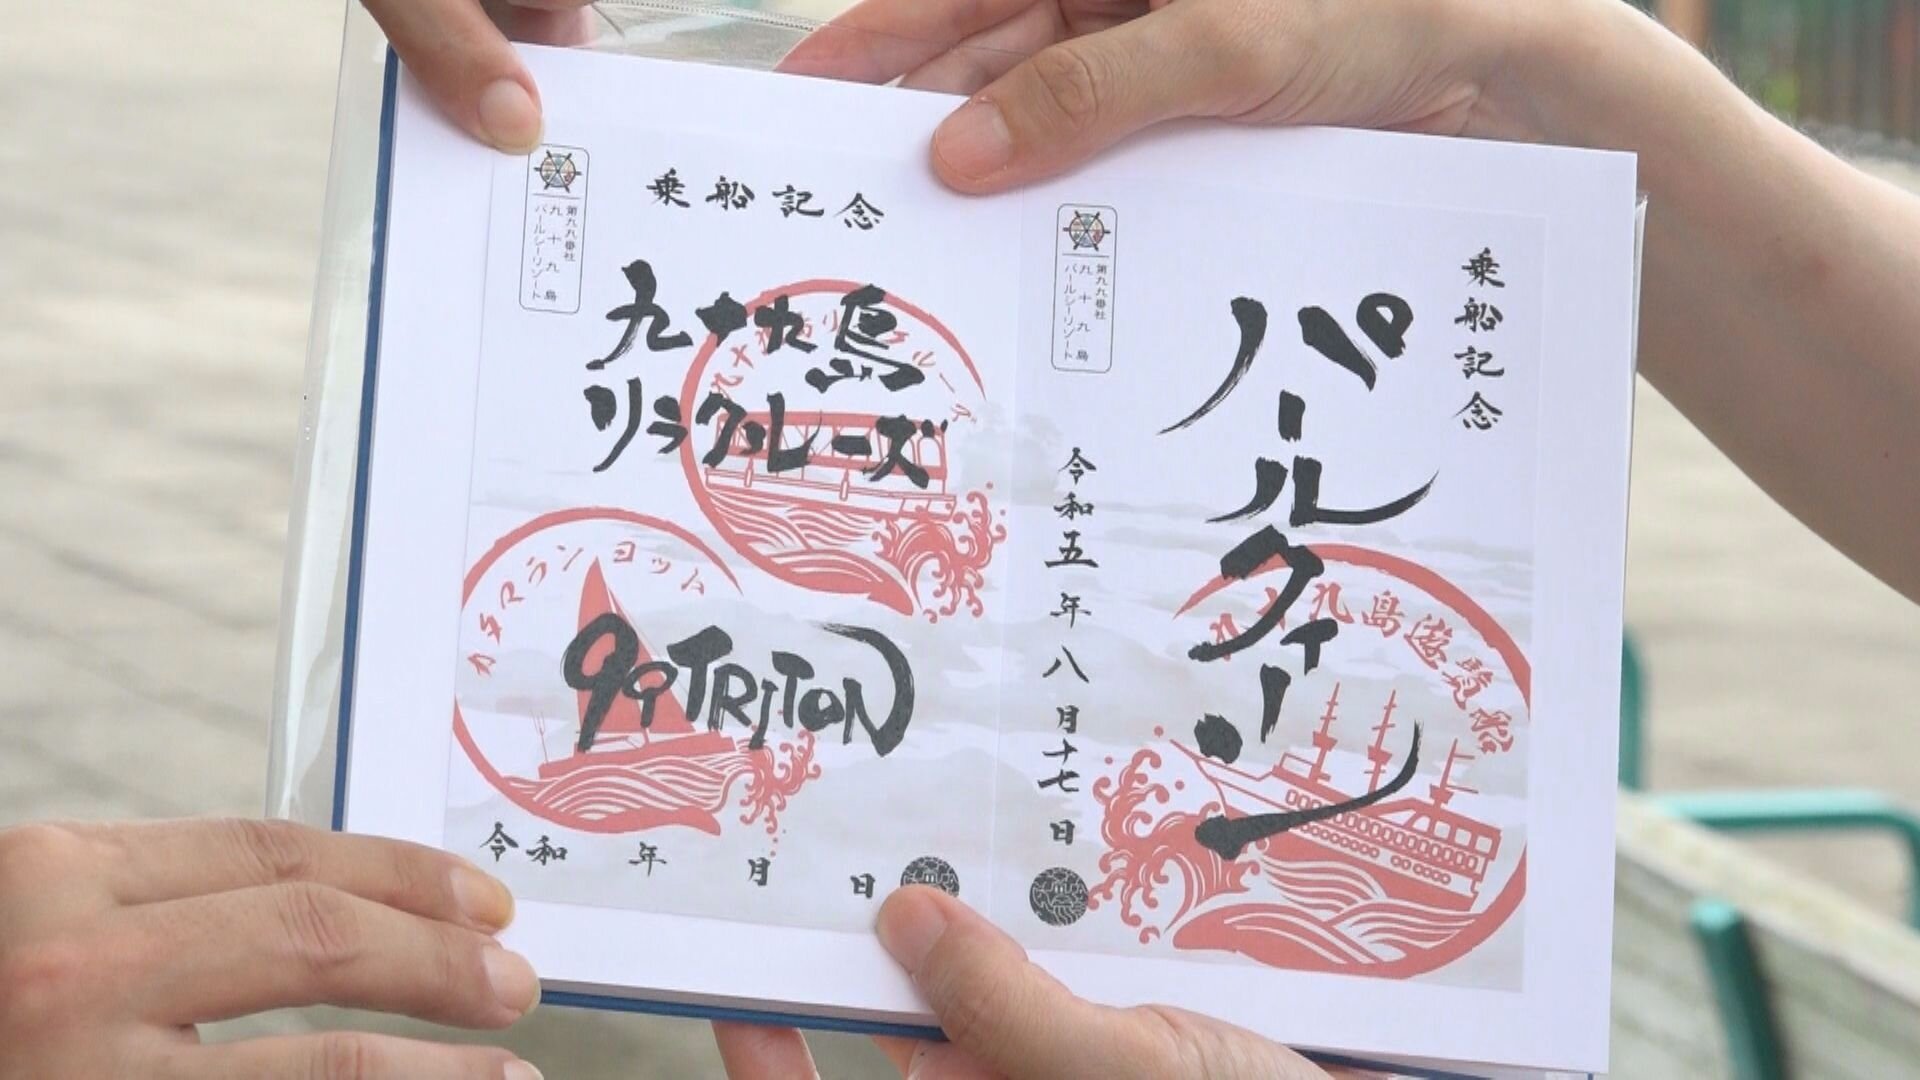 乗船記念
パールクィーン
九十九島遊覧船
令和五年八月十七日
第九九番社
九十九島
パールシーリゾート
乗船記念
九十九島
リラクルーズ
99TRITON
カタマランヨット
令和 年 月 日
第九九番社
九十九島
パールシーリゾート